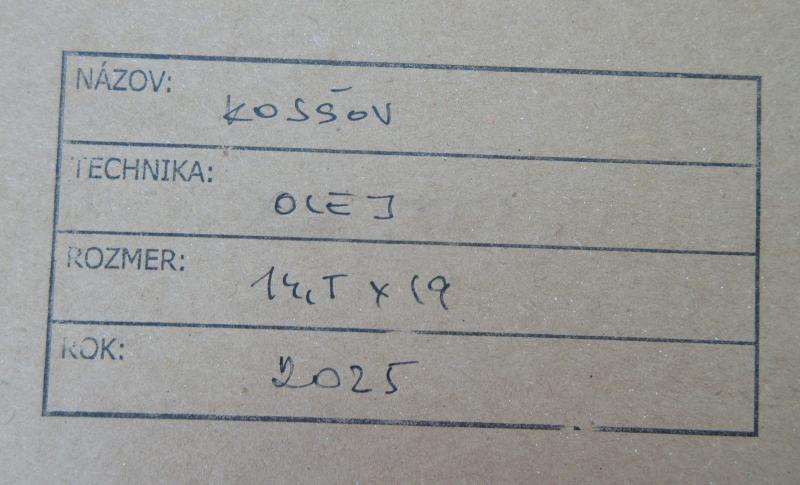 NÁZOV: KOSŠOV
TECHNIKA: OLEJ
ROZMER: 14,5 x 19
ROK: 2025